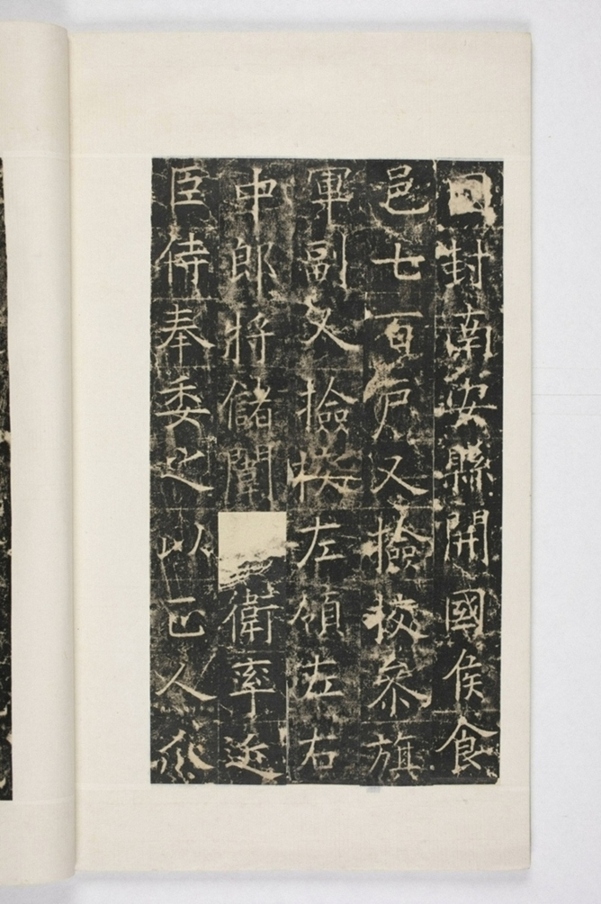 封南安縣開國侯食
邑七百戶又檢校參旗
軍副又檢校左領左右
中郎將儲闈衛率近
臣侍奉委之以正人